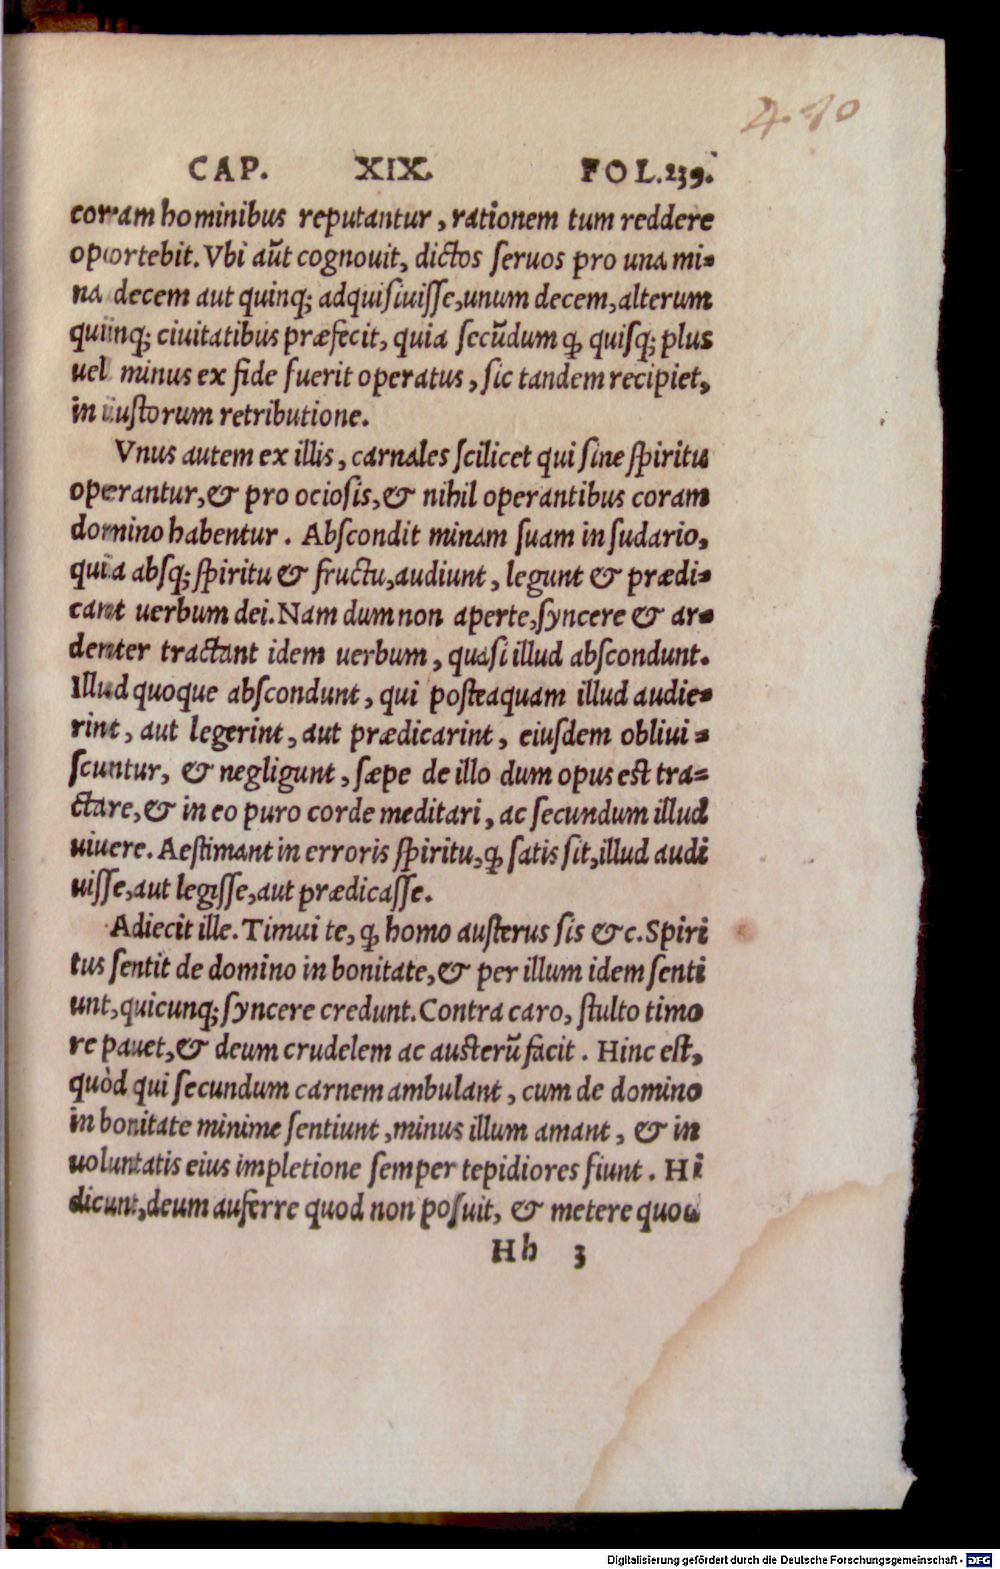 410
CAP. XIX. FOL.239.
corram hominibus reputantur, rationem tum reddere
oportebit. Vbi aũt cognouit, dictos seruos pro una mi=
na decem aut quinq; adquisiuisse, unum decem, alterum
quinq; ciuitatibus præfecit, quia secũdum ꝙ quisq; plus
uel minus ex fide fuerit operatus, sic tandem recipiet,
in iustorum retributione.
Vnus autem ex illis, carnales scilicet qui sine spiritu
operantur, & pro ociosis, & nihil operantibus coram
domino habentur. Abscondit minam suam in sudario,
quia absq; spiritu & fructu, audiunt, legunt & prædi=
cant uerbum dei. Nam dum non aperte, syncere & ar=
denter tractant idem uerbum, quasi illud abscondunt.
Illud quoque abscondunt, qui posteaquam illud audie=
rint, aut legerint, aut prædicarint, eiusdem obliui=
scuntur, & negligunt, sæpe de illo dum opus est tra=
ctare, & in eo puro corde meditari, ac secundum illud
uiuere. Aestimant in erroris spiritu, ꝙ satis sit, illud audi
uisse, aut legisse, aut prædicasse.
Adiecit ille. Timui te, ꝙ homo austerus sis &c. Spiri
tus sentit de domino in bonitate, & per illum idem senti
unt, quicunq; syncere credunt. Contra caro, stulto timo
re pauet, & deum crudelem ac austerũ facit. Hinc est,
quòd qui secundum carnem ambulant, cum de domino
in bonitate minime sentiunt, minus illum amant, & in
uoluntatis eius impletione semper tepidiores fiunt. Hi
dicunt, deum auferre quod non posuit, & metere quod
Hh 3
Digitalisierung gefördert durch die Deutsche Forschungsgemeinschaft - DFG